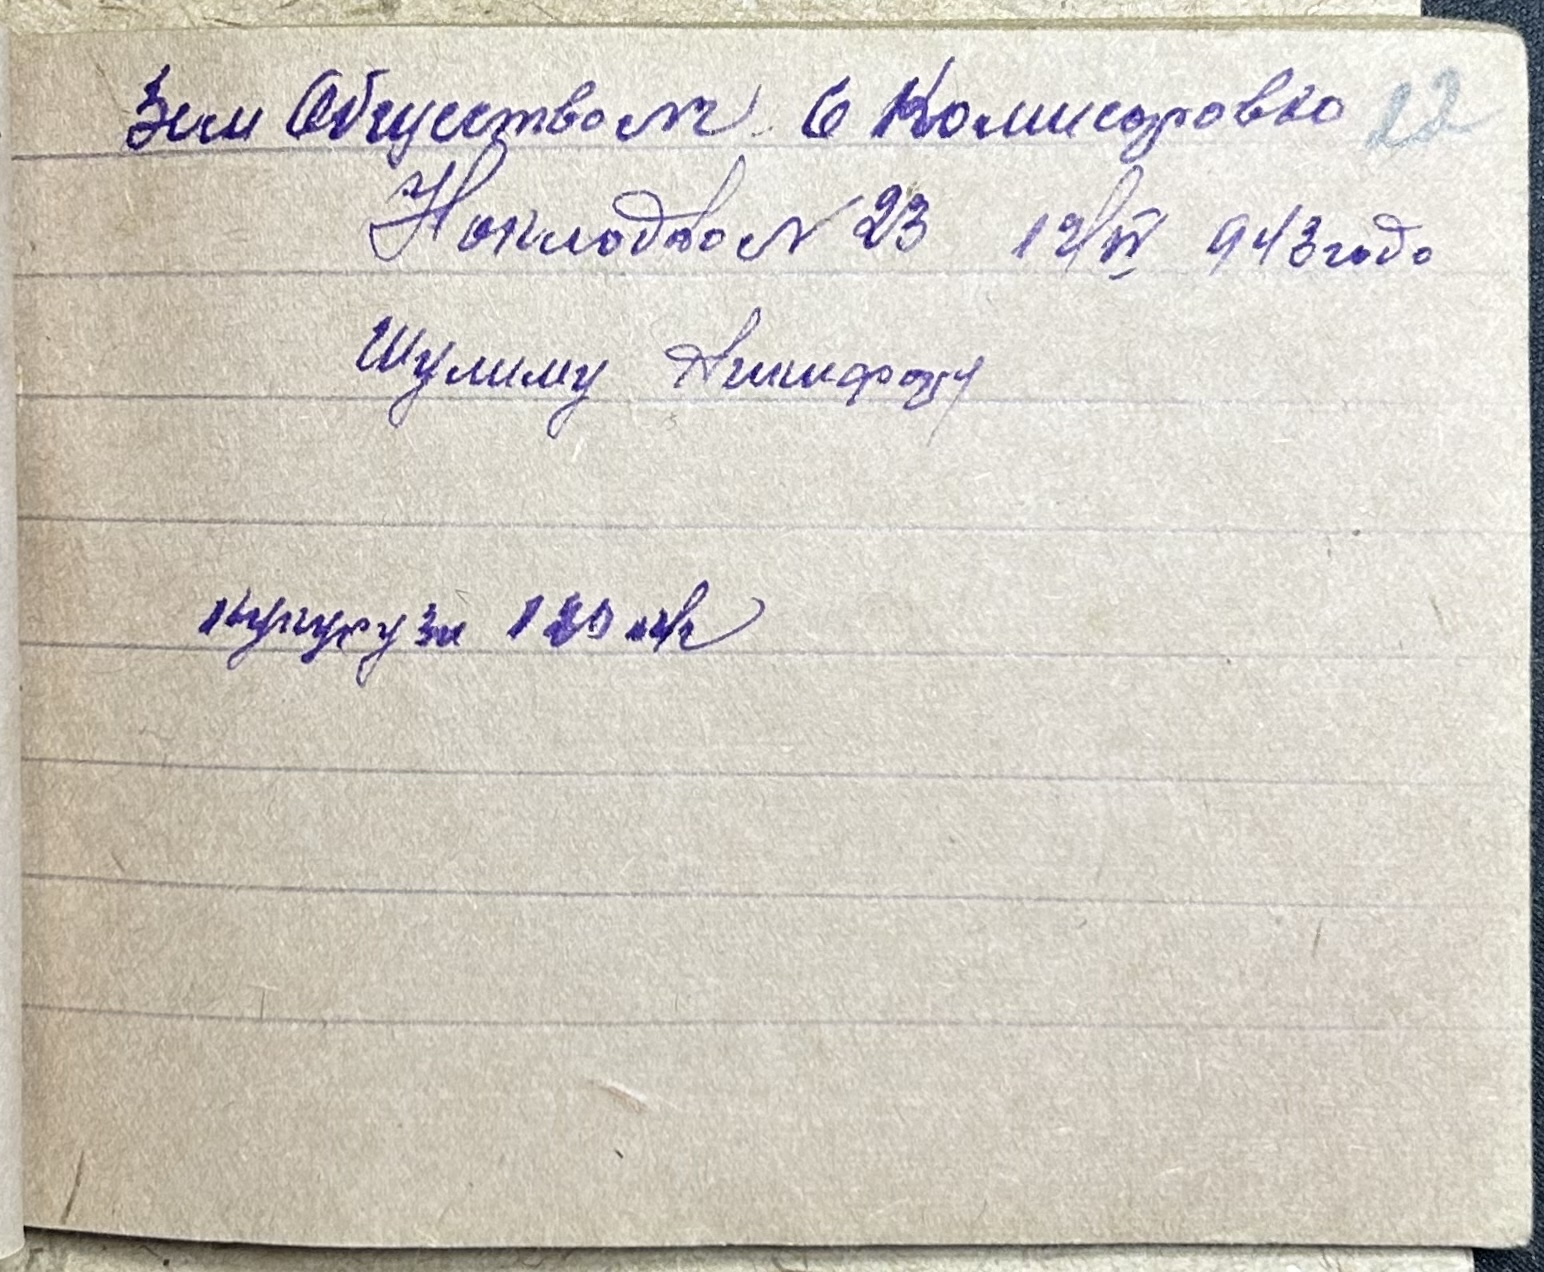 Зем Обществом с Комисаровка 22
Накладная 23 12/IV 943 года
Шулиму Никифору
кукурузи 120 кг